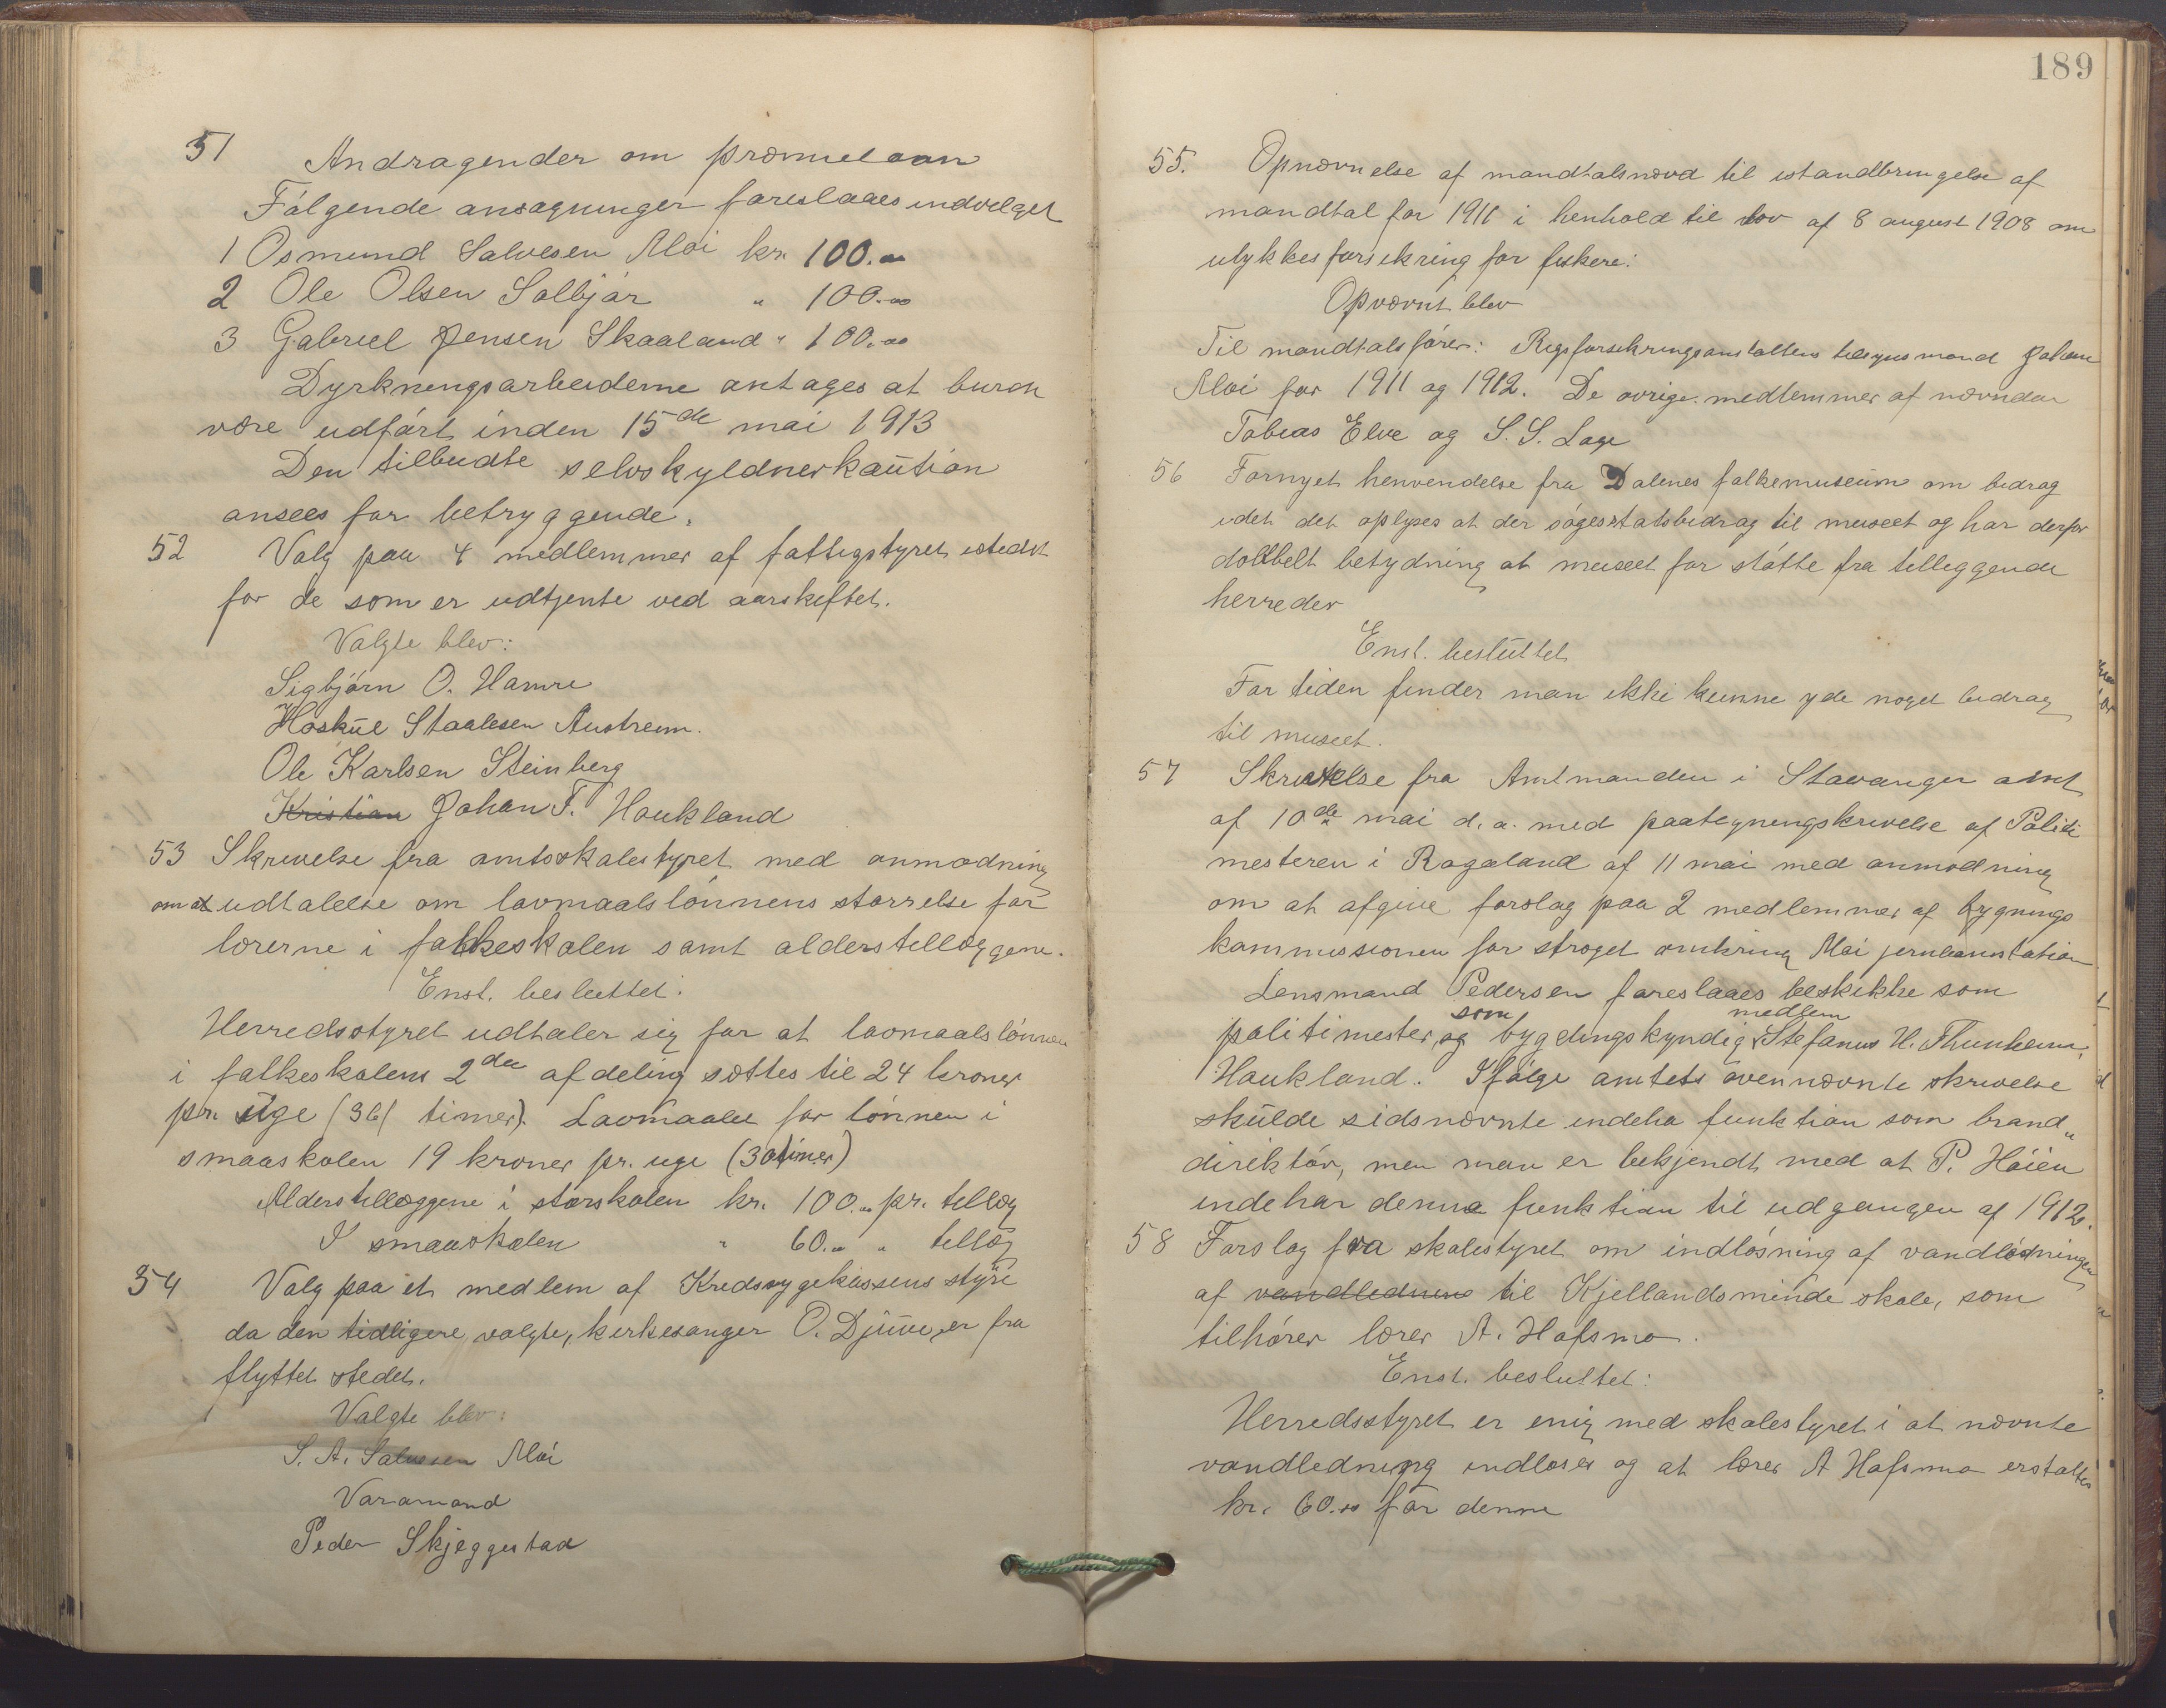 51 Andragender om præmielaan
Følgende ansøgninger foreslaaes indvelget
1 Osmund Salvesen Moi kr. 100.00
2 Ole Olsen Solbjør " 100.00
3 Gabriel Jensen Skaaland " 100.00
Dyrkningsarbeiderne antages at burde
være udført inden 15de mai 1913
Den tilbudte selvskyldnerkaution
ansees for betryggende.
52 Valg paa 4 medlemmer af fattigstyret istedet
for de som er udtjente ved aarskiftet.
Valgte blev:
Sigbjørn O. Hamre
Hoskul Staalesen Austreim.
Ole Karlsen Steinberg
Kristian Johan T. Haukland
53 Skrivelse fra amtsskolestyret med anmodning
om at udtalelse om lavmaalslønnens størrelse for
lærerne i folkeskolen samt alderstillæggene.
Enst. besluttet:
Herredsstyret udtaler sig for at lavmaalslønnen
i folkeskolens 2den afdeling sættes til 24 kroner
pr. uge (36 timer). Lavmaalet for lønnen i
smaaskolen 19 kroner pr. uge (30 timer)
Alderstillæggene i storskolen kr. 100.00 pr. tillæg
I smaaskolen " 60.00 " tillæg
54 Valg paa et medlem af Kredssygekassens styre
da den tidligere valgte, kirkesanger O. Djuve, er fra
flyttet stedet.
Valgte blev:
S. A. Salvesen Moi
Varamand
Peder Skjeggestad
189
55. Opnævnelse af mandtalsnævd til istandbringelse af
mandtal for 1911 i henhold til lov af 8 august 1908 om
ulykkesforsikring for fiskere:
Opnævnt blev
Til mandtalsfører: Rigsforsikringsanstaltens tilsynsmand Johan
Moi for 1911 og 1912. De øvrige medlemmer af nævnden
Tobias Elve og S. S. Lage
56 Fornyet henvendelse fra Dalenes folkemuseum om bidrag
idet det oplyses at der søges statsbidrag til museet og har derfor
dobbelt betydning at museet for støtte fra tilliggende
herreder
Enst. besluttet
For tiden finder man ikke kunne yde noget bidrag
til museet.
57 Skrivelse fra Amtmanden i Stavanger amt
af 10de mai d. a. med paategningsskrivelse af Politi
mesteren i Rogaland af 11 mai med anmodning
om at afgive forslag paa 2 medlemmer af bygnings
kommissionen for strøget omkring Moi jernbanestation
Lensmand Pedersen foreslaaes beskikke som
politimester, og som bygdingskyndig medlem Stefanus H. Thunheim,
Haukland. Ifølge amtets ovennævnte skrivelse
skulde sidsnævnte indeha funktion som brand„
direktør, men man er bekjendt med at P. Høien
indehar denne funktion til udgangen af 1912.
58 Forslag fra skolestyret om indløsning af vandledningen
af vandledning til Kjellandsminde skole, som
tilhører lærer A. Hafsmo.
Enst. besluttet:
Herredsstyret er enig med skolestyret i at nævnte
vandledning indløses og at lærer A Hafsmo erstattes
kr. 60.00 for denne